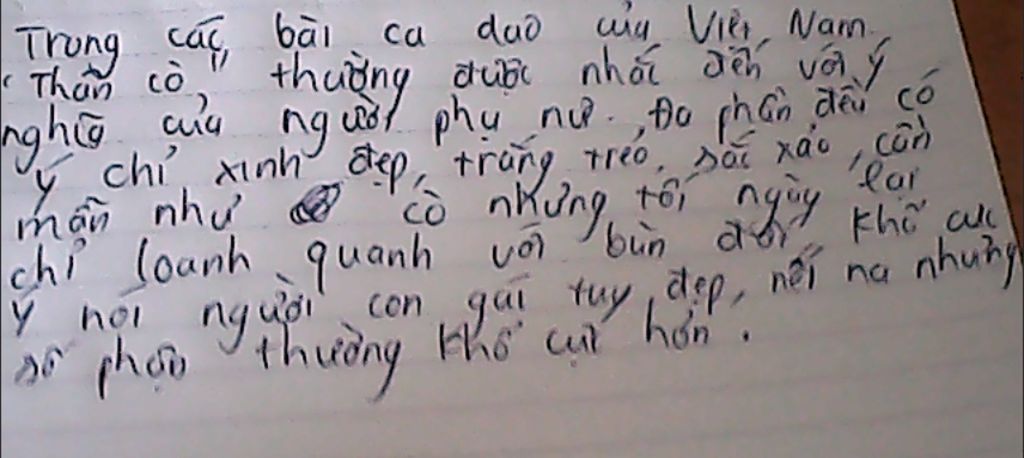 Trong các bài ca dao của Việt Nam,
"Thân cò" thường được nhắc đến với ý
nghĩa của người phụ nữ. Đa phần đều có
ý chỉ xinh đẹp, trắng trẻo, sắc xảo, cần
mẫn như cò nhưng tối ngày lại
chỉ loanh quanh với bùn đất, khổ cực
ý nói người con gái tuy đẹp, nết na nhưng
số phận thường khổ cực hơn.